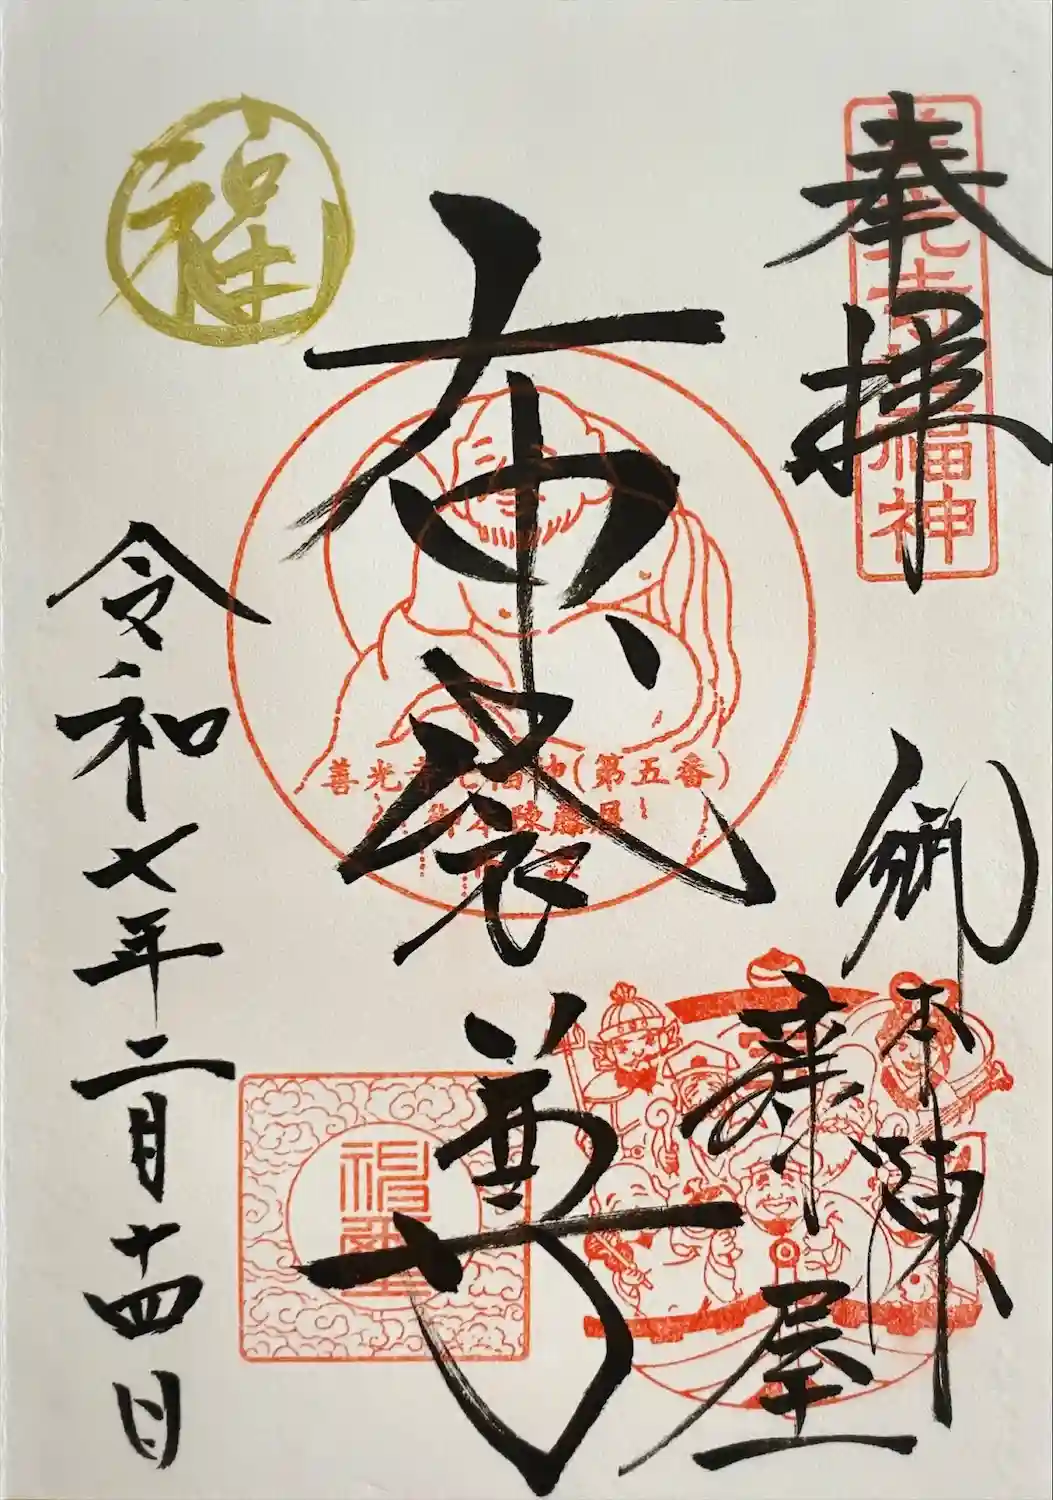 奉拝
善光寺七福神
御本陳
藤屋
布袋尊
善光寺七福神(第五番)
御本陳藤屋
福
令和七年二月十四日